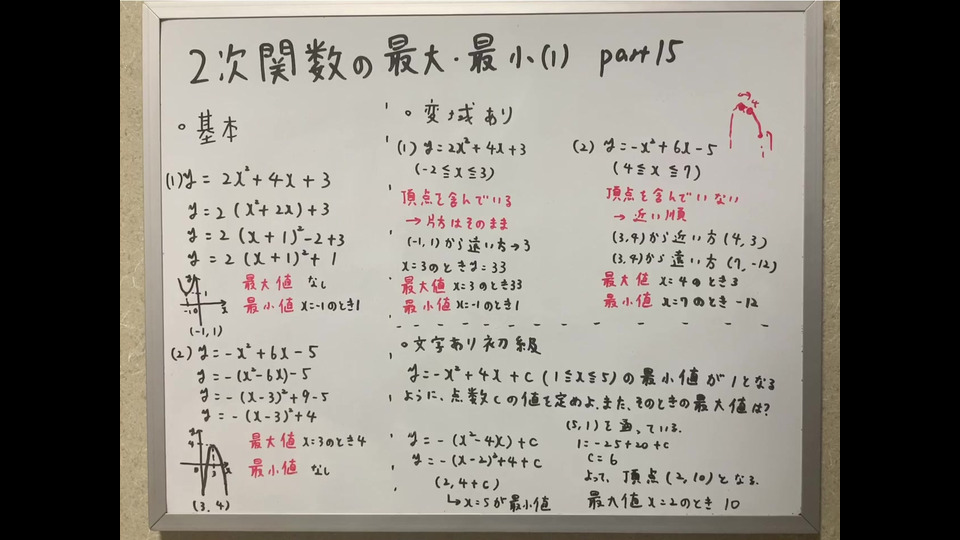 2次関数の最大・最小(1) part15
○基本
(1) y=2x²+4x+3
y=2(x²+2x)+3
y=2(x+1)²-2+3
y=2(x+1)²+1
最大値 なし
最小値 x=-1のとき1
(-1,1)
(2) y=-x²+6x-5
y=-(x²-6x)-5
y=-(x-3)²+9-5
y=-(x-3)²+4
最大値 x=3のとき4
最小値 なし
(3,4)
○変域あり
(1) y=2x²+4x+3
(-2≦x≦3)
頂点を含んでいる
→片方はそのまま
(-1,1)から遠い方→3
x=3のときy=33
最大値 x=3のとき33
最小値 x=-1のとき1
(2) y=-x²+6x-5
(4≦x≦7)
頂点を含んでいない
→近い順
(3,4)から近い方(4,3)
(3,4)から遠い方(7,-12)
最大値 x=4のとき3
最小値 x=7のとき-12
4
7
○文字あり初級
y=-x²+4x+c(1≦x≦5)の最小値が1となる
ように、点数cの値を定めよ。また、そのときの最大値は?
y=-(x²-4x)+c
y=-(x-2)²+4+c
(2,4+c)
↳x=5が最小値
(5,1)を通っている。
1=-25+20+c
c=6
よって、頂点(2,10)となる。
最大値x=2のとき10